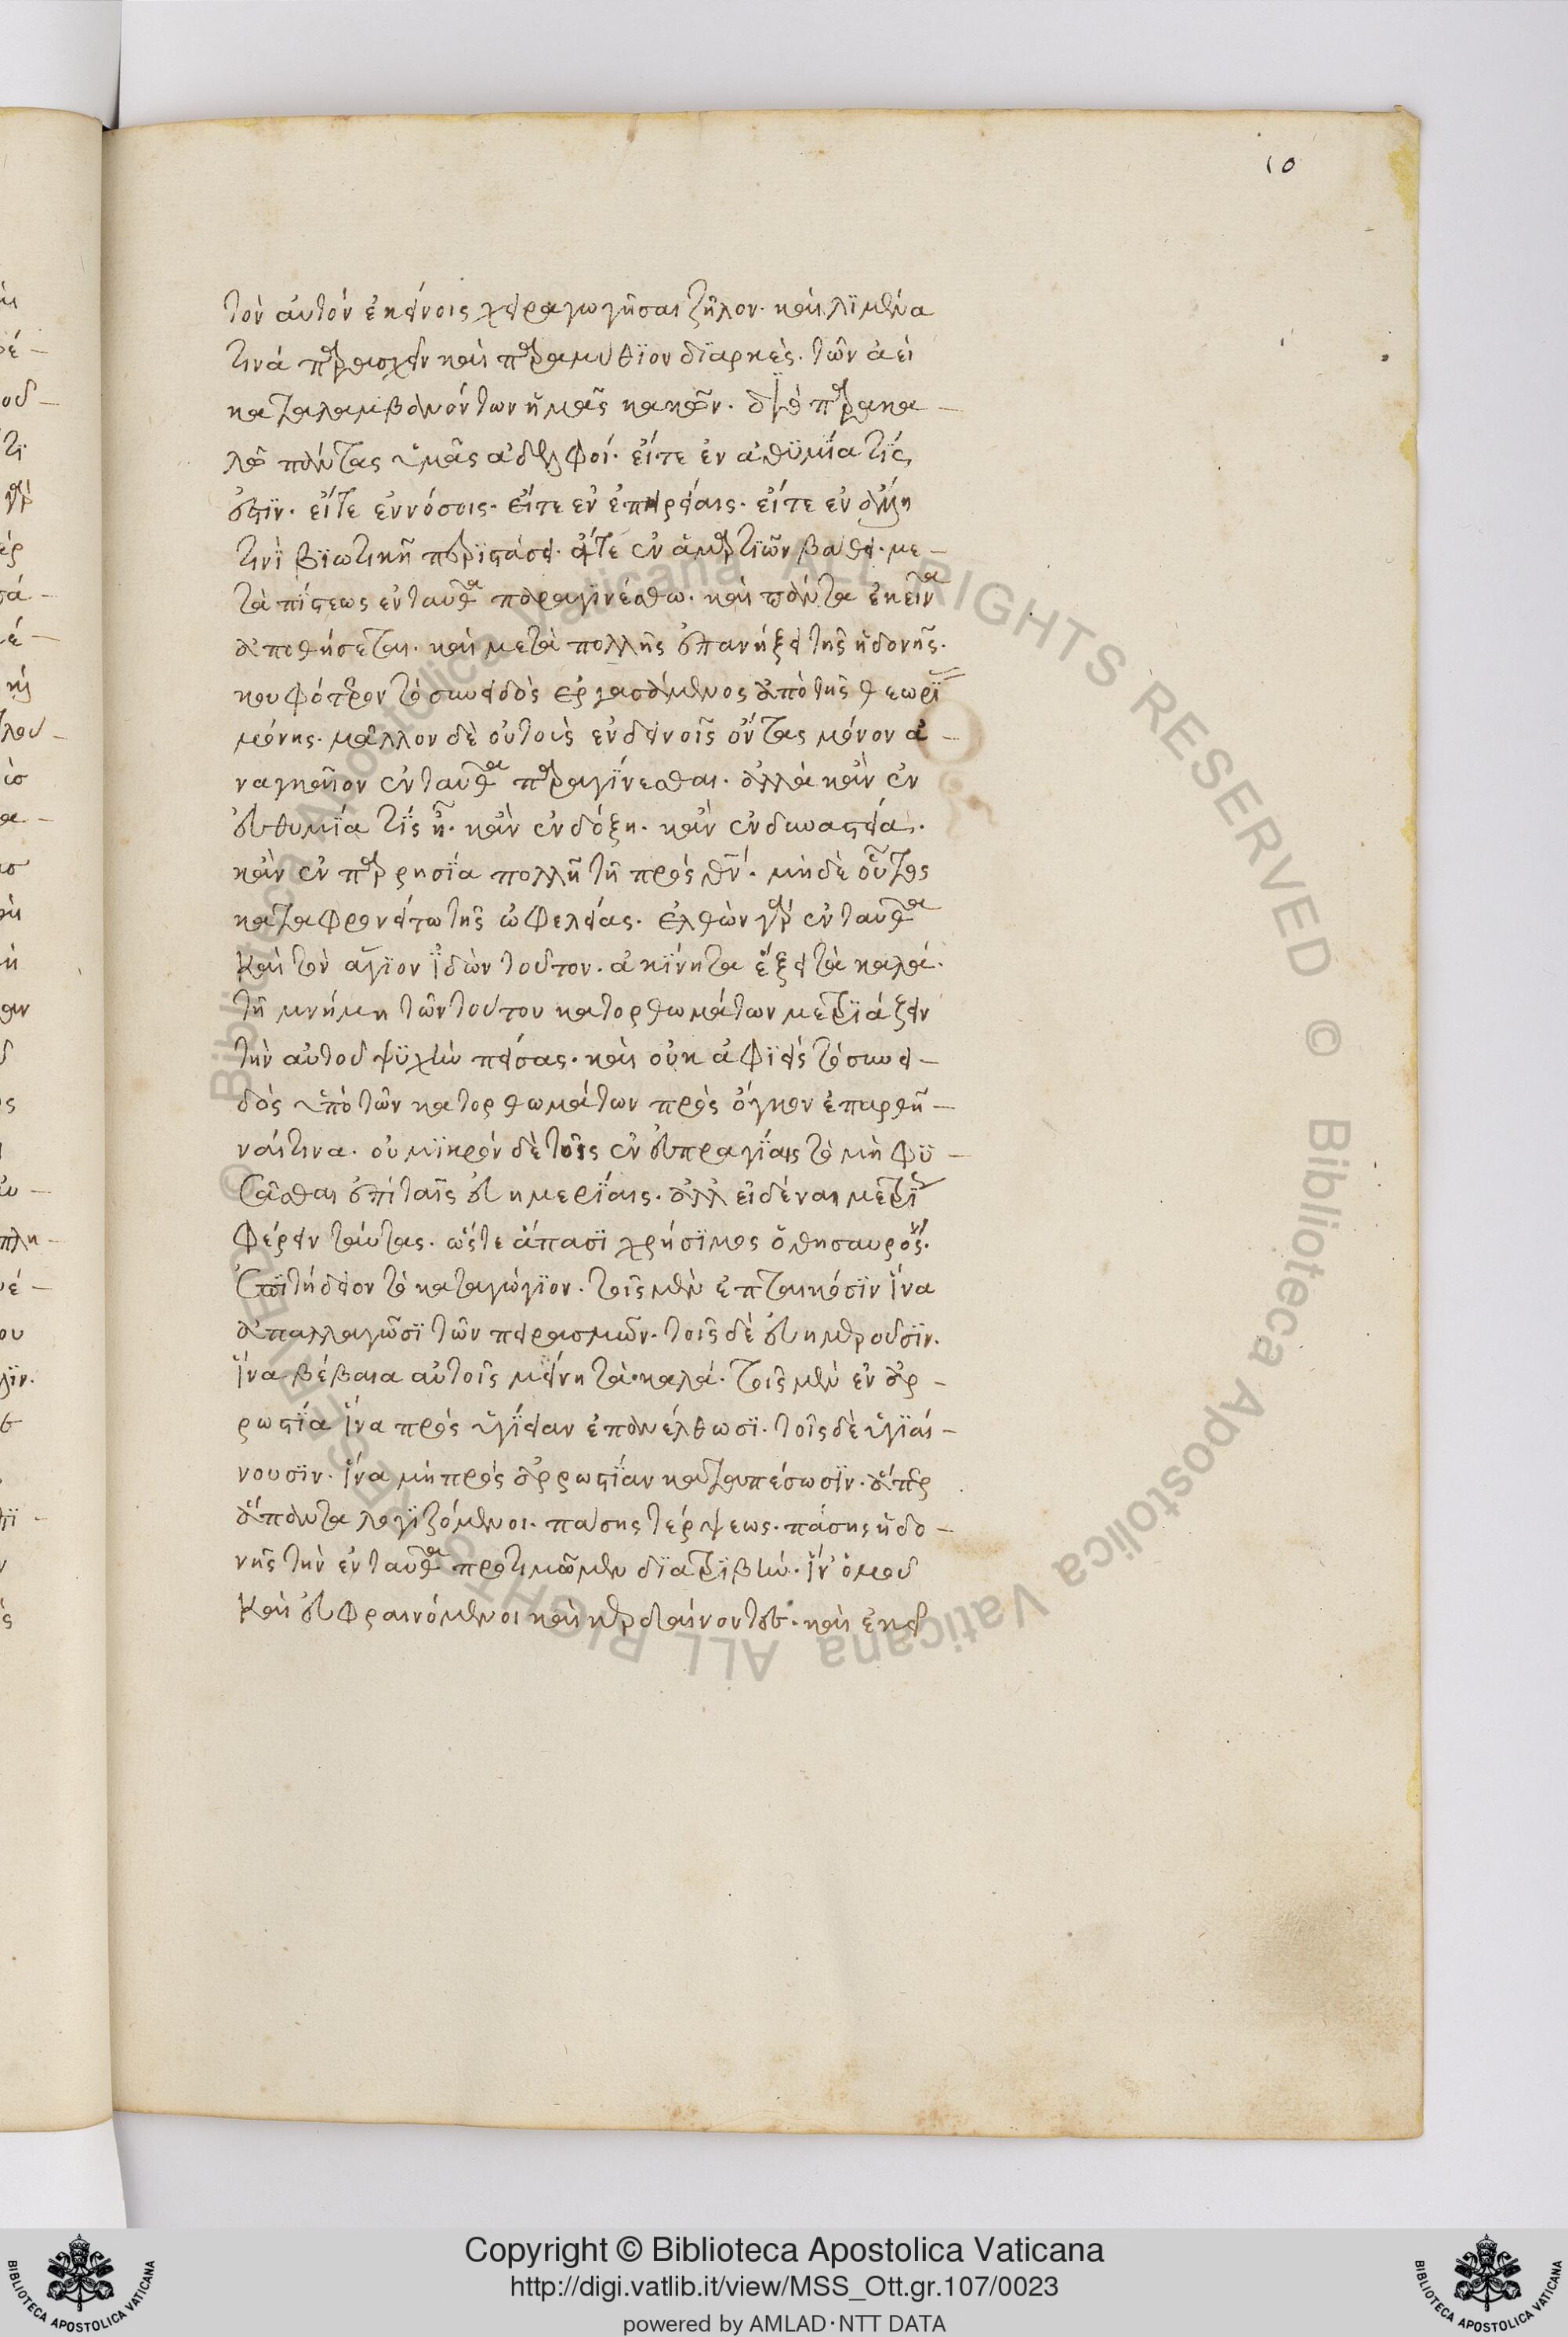 10
τὸν αὐτὸν ἐκείνοις χειραγωγῆσαι ζῆλον· καὶ λϊμένα
τινὰ παρασχεῖν καὶ παραμυθϊον δϊαρκὲς· τῶν ἀεὶ
καταλαμβανόντων ἡμᾶς κακῶν· διὸ παρακα–
λῶ πάντας ὑμᾶς ἀδελφοί· εἴτε ἐν ἀθϋμΐα τΐς
ἐστϊν· εἴτε ἐν νόσοις· εἴτε ἐν ἐπηρείαις· εἴτε ἐν ἄλλη
τινῒ βϊωτικῆ περϊστάσει· εἴτε ἐν ἁμαρτϊῶν βάθει· με–
τὰ πίστεως ἐνταῦθα παραγϊνέσθω· καὶ πάντα ἐκεῖνα
ἀποθήσεται· καὶ μετὰ πολλῆς ἐπανήξει τῆς ἡδονῆς·
κουφότερον τὸ συνειδὸς ἐργασάμενος ἀπὸ τῆς θεωρΐας
μόνης· μᾶλλον δὲ οὐ τοὺς ἐν δεινοῖς ὄντας μόνον ἀ–
ναγκαῖον ἐνταῦθα παραγΐνεσθαι· ἀλλὰ κἂν ἐν
εὐθυμΐα τΐς ἦ· κἂν ἐν δόξη· κἂν ἐν δυναστεία·
κἂν ἐν παρρησΐα πολλῆ τῆ πρὸς θν̄· μηδὲ οὗτος
καταφρονείτω τῆς ὠφελείας· ἐλθὼν γὰρ ἐνταῦθα
Καὶ τὸν ἅγϊον ἰδὼν τοῦτον· ἀκΐνητα ἕξει τὰ καλά·
τῆ μνήμη τῶν τούτου κατορθωμάτων μετρϊάζειν
τὴν αὐτοῦ ψϋχὴν πείσας· καὶ οὐκ ἀφϊεὶς τὸ συνει–
δὸς ὑπὸ τῶν κατορθωμάτων πρὸς ὄγκον ἐπαρθῆ–
ναί τινα· οὐ μϊκρὸν δὲ τοῖς ἐν εὐπραγΐαις τὸ μὴ φϋ–
σᾶσθαι ἐπὶ ταῖς εὐημερΐαις· ἀλλ εἰδέναι μετρΐως
φέρειν ταύτας· ὥστε ἅπασϊ χρήσϊμος ὁ θησαυρός·
Ἐπϊτήδειον τὸ καταγώγϊον· τοῖς μὲν ἐπταικόσϊν ἵνα
ἀπαλλαγῶσϊ τῶν πειρασμῶν· τοῖς δὲ εὐημεροῦσϊν·
ἵνα βέβαια αὐτοῖς μείνη τὰ καλά· τοῖς μὲν ἐν ἀρ–
ρωστΐα ἵνα πρὸς ὑγΐειαν ἐπανέλθωσϊ· τοῖς δὲ ὑγϊαί–
νουσϊν· ἵνα μὴ πρὸς ἀρρωστΐαν καταπέσωσϊν· ἅπερ
ἅπαντα λογϊζόμενοι· πάσης τέρψεως· πάσης ἡδο–
νῆς τὴν ἐνταῦθα προτιμῶμεν δϊατρϊβὴν· ἵν' ὁμοῦ
Καὶ εὐφραινόμενοι καὶ κερδαίνοντες· καὶ ἐκεῖ
Copyright © Biblioteca Apostolica Vaticana
http://digi.vatlib.it/view/MSS_Ott.gr.107/0023
powered by AMLAD·NTT DATA
BIBLIOTECA APOSTOLICA VATICANA
BIBLIOTECA APOSTOLICA VATICANA
© Biblioteca Apostolica Vaticana ALL RIGHTS RESERVED © Biblioteca Apostolica Vaticana ALL RIGHTS RESERVED